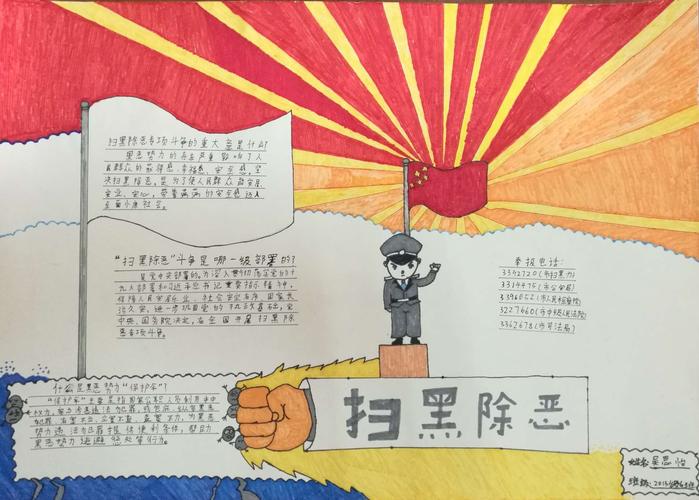 扫黑除恶专项斗争的重大意是什么?
黑恶势力的存在严重影响了人
民群众的获得感、幸福感、安全感,坚
决扫黑除恶,是为了使人民群众
安业、安心,带着满满的安全感迈入
全面小康社会。
"扫黑除恶"斗争是哪一级部署的?
是党中央部署的。为深入贯彻落实党的十
九大部署和习近平总书记重要指示精神,
保障人民安居乐业、社会安定有序、国家长
治久安,进一步巩固党的执政基础,党
中央、国务院决定,在全国开展扫黑除
恶专项斗争。
举报电话:
3342720(市扫黑办)
3314475(市公安局)
3396552(市人民检察院)
3227660(市中级人民法院)
3362678(市司法局)
什么是黑恶势力"保护伞"?
"保护伞"主要是指国家公职人员利用手中
权力,
犯罪,有案不立、立案不查、查案不力,为黑恶
势力违法犯罪提供便利条件,帮助
黑恶势力逃避惩处等行为。
扫黑除恶
姓名:吴思怡
班级: